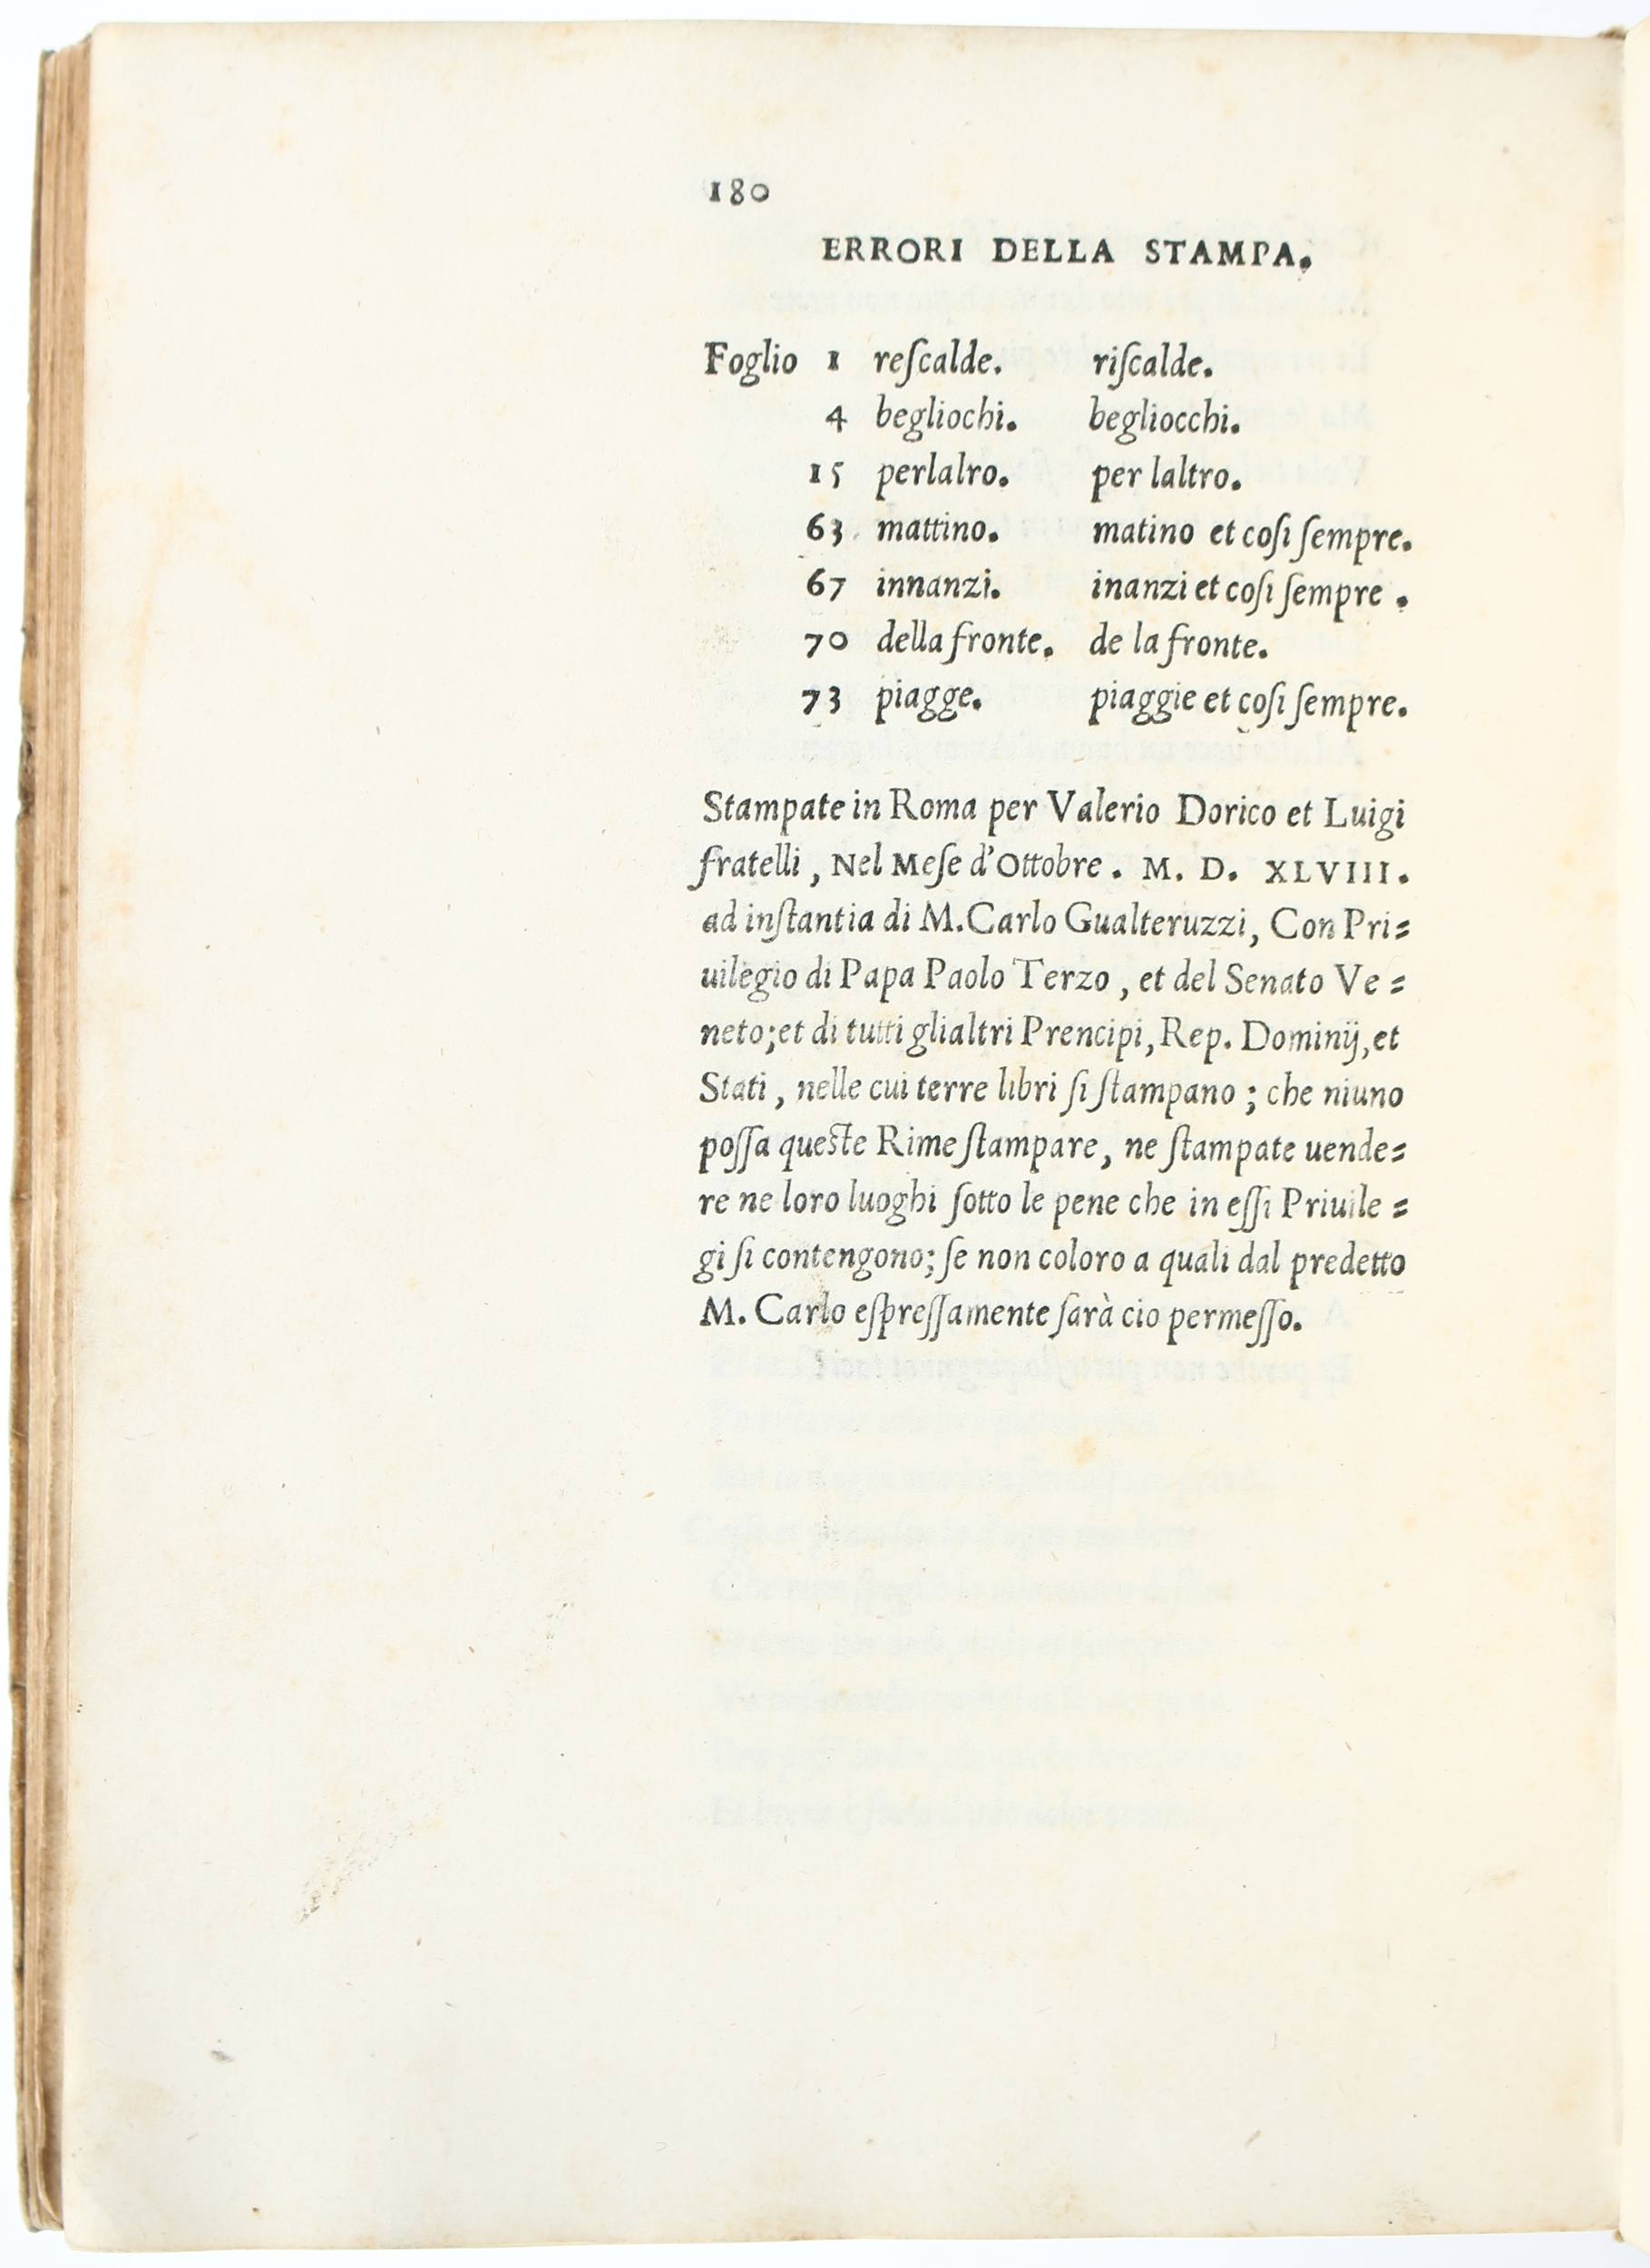 180
ERRORI DELLA STAMPA.
Foglio 1 reſcalde. riſcalde.
4 begliochi. begliocchi.
15 perlalro. per laltro.
63 mattino. matino et coſi ſempre.
67 innanzi. inanzi et coſi ſempre .
70 della fronte. de la fronte.
73 piagge. piaggie et coſi ſempre.
Stampate in Roma per Valerio Dorico et Luigi
fratelli , Nel Meſe d'Ottobre . M. D. XLVIII.
ad inſtantia di M. Carlo Gualteruzzi, Con Pri=
uilegio di Papa Paolo Terzo , et del Senato Ve=
neto; et di tutti glialtri Prencipi, Rep. Dominij, et
Stati , nelle cui terre libri ſi ſtampano ; che niuno
poſſa queſte Rime ſtampare, ne ſtampate uende=
re ne loro luoghi ſotto le pene che in eſſi Priuile=
gi ſi contengono; ſe non coloro a quali dal predetto
M. Carlo eſpreſſamente ſarà cio permeſſo.